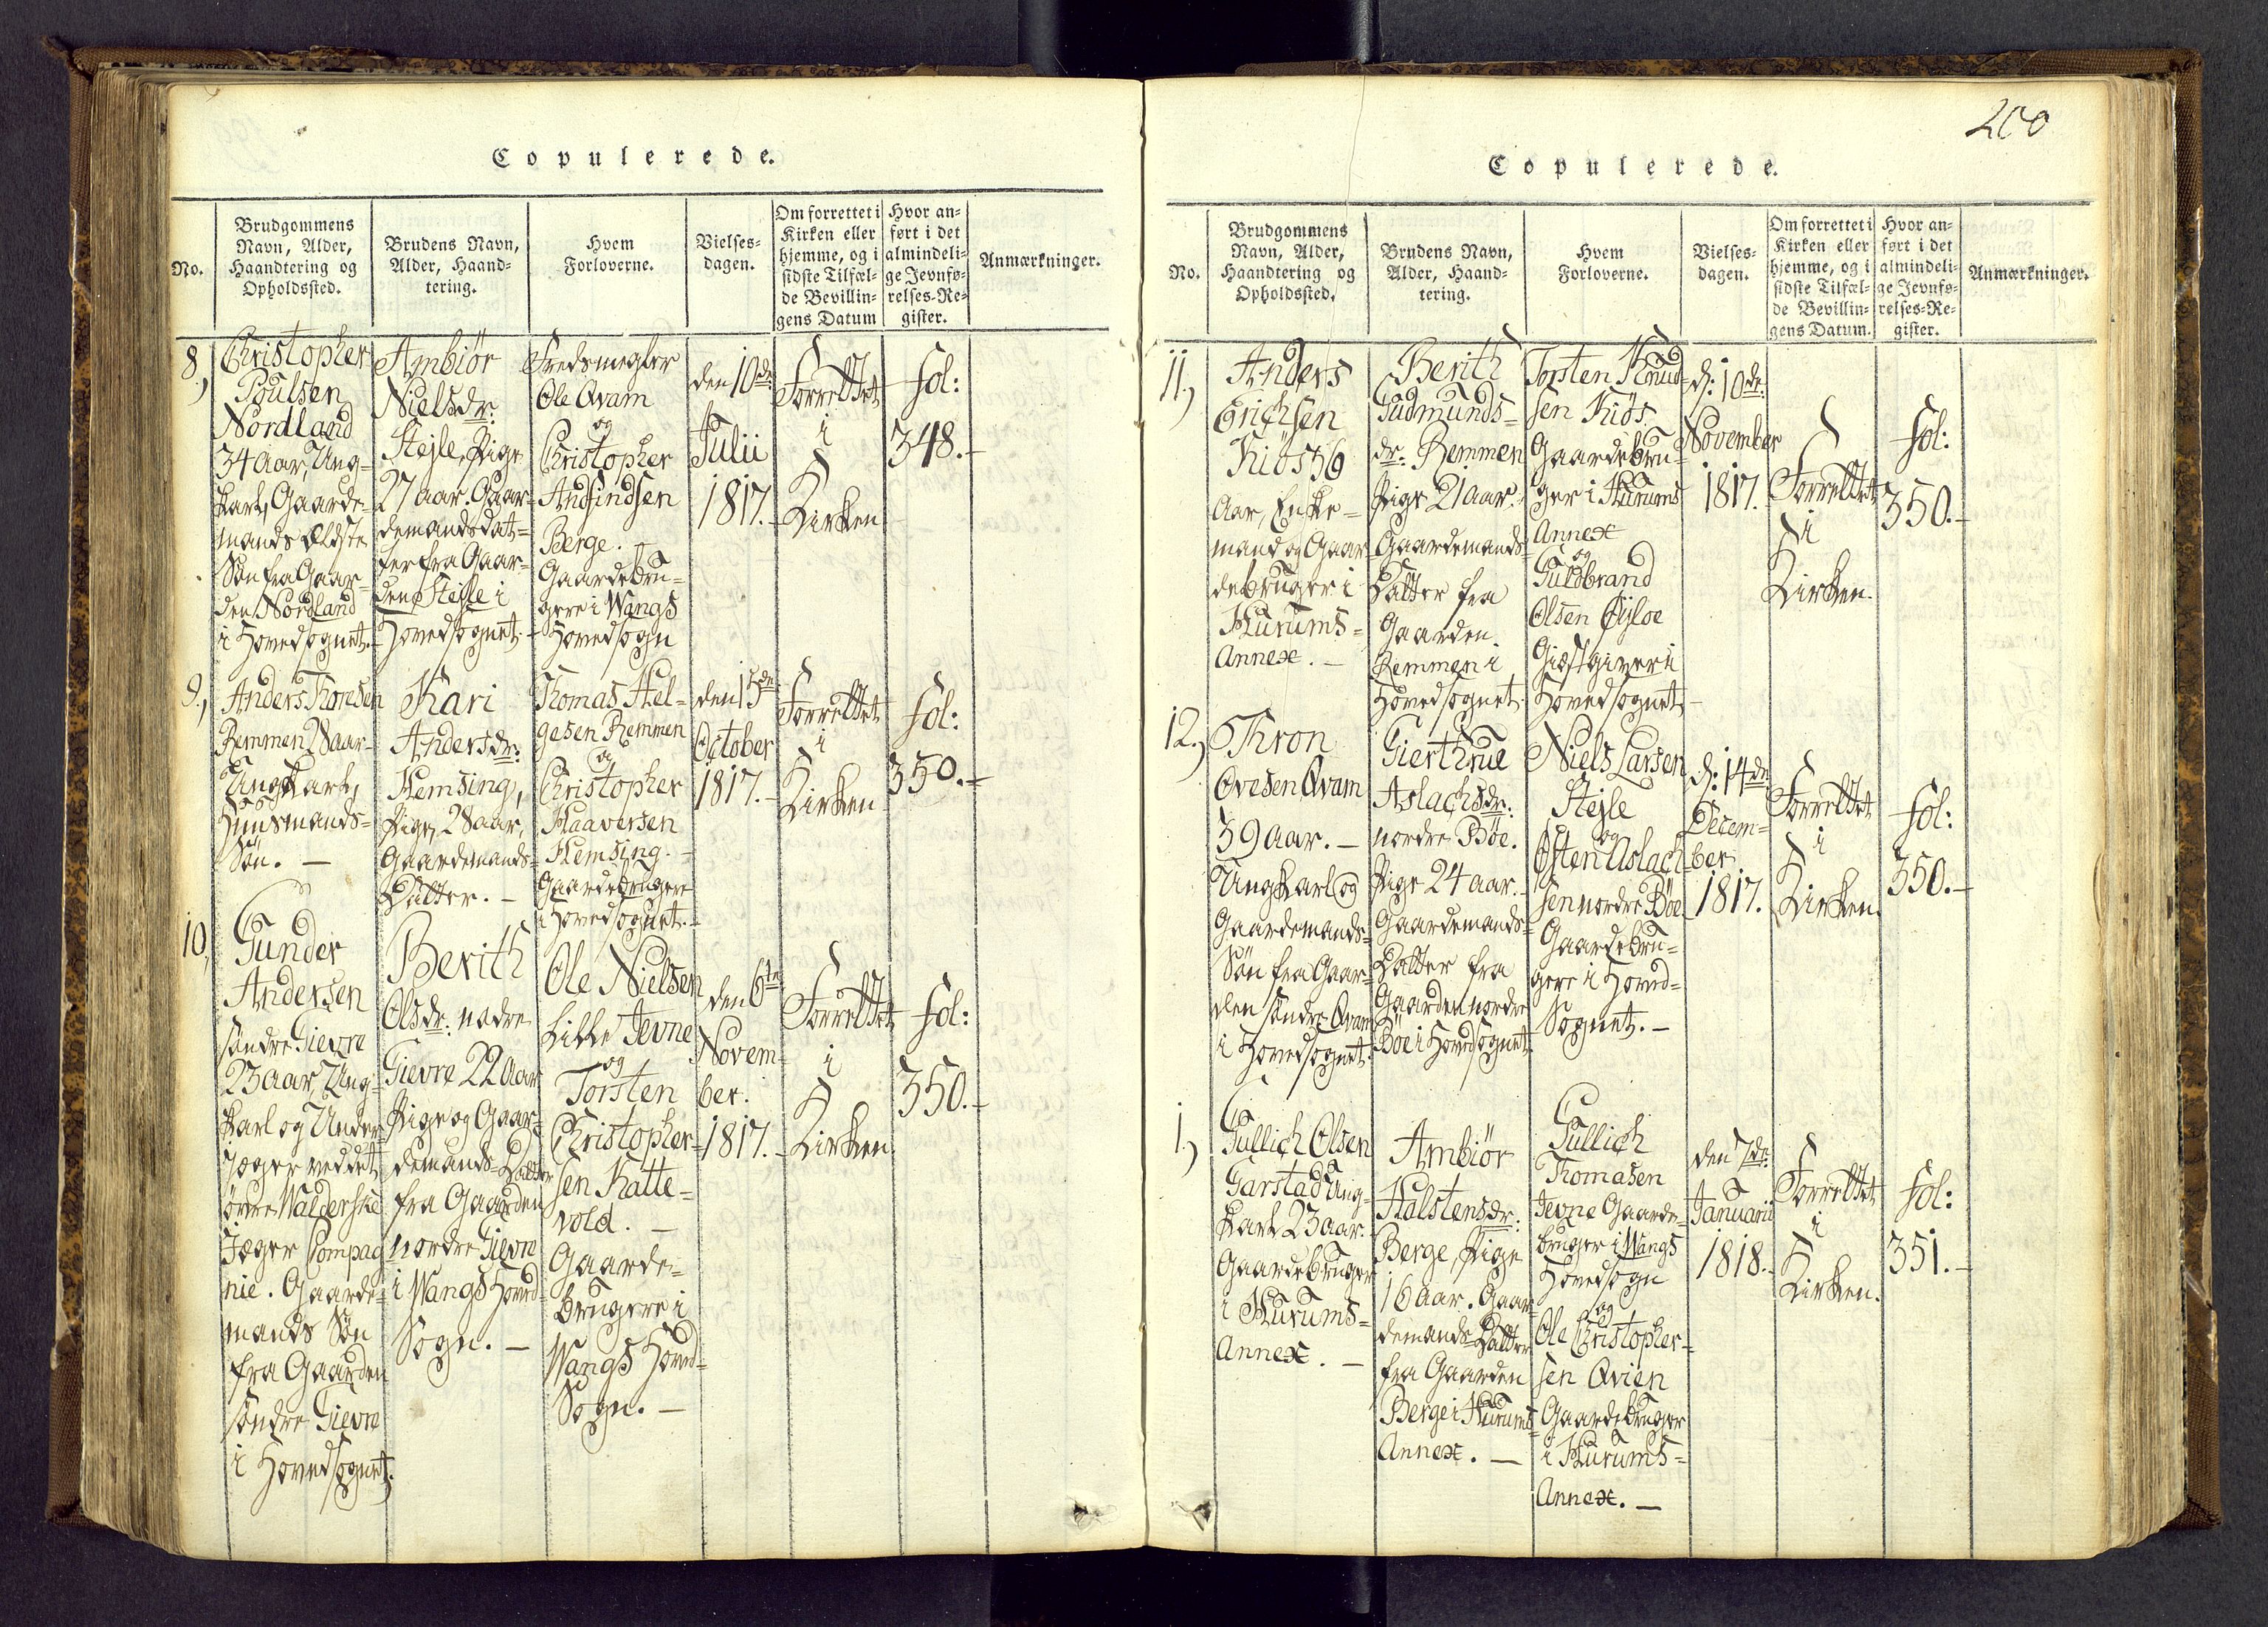 Copulerede.
No.
Brudgommens
Navn, Alder,
Haandtering og
Opholdssted.
Brudens Navn,
Alder, Haand-
tering.
Hvem
Forloverne.
Vielses-
dagen.
Om forrettet i
Kirken eller
hjemme, og i
sidste Tilfæl-
de Bevillin-
gens Datum
Hvor an-
ført i det
almindeli-
ge Jevnfø-
relses-Re-
gister.
Anmærkninger.
8.)
Christopher
Poulsen
Nordland
34 Aar, Ung-
karl, Gaarde-
mands ældste
Søn fra Gaar-
den Nordland
i Hovedsognet.
Ambiør
Nielsdr:
Stejle, Pige
27 aar. Gaar-
demandsdat-
ter fra Gaar-
den Stejle i
Hovedsognet.
Fredsmegler
Ole Qvam
og
Christopher
Andfindsen
Berge.
Gaardebru-
gere i Wangs
Hovedsogn
den 10de
Julii
1817.-
Forrettet
i
Kirken
fol:
348.-
9.)
Anders Thoresen
Remmen 28aar
Ungkarl,
Huusmands-
Søn. -
Kari
Andersdr:
Hemsing,
Pige, 28aar,
Gaardemands-
Datter. -
Thomas Hel-
gesen Remmen
og
Christopher
Haaversen
Hemsing. -
Gaardebrugere
i Hovedsognet. -
den 15de
October
1817.-
Forrettet
i
Kirken
fol:
350.-
10,
Gunder
Andersen
søndre Gievre
23 aar, Ung-
karl og Under
jæger ved det
øvre Walderske
Jæger Compag-
nie. Gaarde-
mands Søn
fra Gaarden
søndre Gievre
i Hovedsognet.
Berith
Olsdr: nordre
Gievre 22 aar
Pige og Gaar-
demands-Datter
fra Gaarden
nordre Gievre
i Wangs Hoved-
Sogn. -
Ole Nielsen
Lille Jevne
og
Torsten
Christopher-
sen Katte-
vold. -
Gaarde-
brugere i
Wangs Hoved-
Sogn. -
den 6te
Novem-
ber.
1817.-
Forrettet
i
Kirken
fol:
350.-
200
Copulerede.
No.
Brudgommens
Navn, Alder,
Haandtering og
Opholdssted.
Brudens Navn,
Alder, Haand-
tering.
Hvem
Forloverne.
Vielses-
dagen.
Om forrettet i
Kirken eller
hjemme, og i
sidste Tilfæl-
de Bevillin-
gens Datum.
Hvor an-
ført i det
almindeli-
ge Jevnfø-
relses-Re-
gister.
Anmærkninger.
11.)
Anders
Erichsen
Kiøs 69
Aar, Enke-
mand og Gaar
debruger i
Hurums-
Annex. -
Berith
Gudmunds-
dr: Remmen
Pige 21 aar.
Gaardemands
Datter fra
Gaarden
Remmen i
Hovedsognet.
Torsten Knud-
sen Kiøs.
Gaardebru-
ger i Hurums
Annex
og
Guldbrand
Olsen Øyloe
Giæstgiver i
Hovedsognet -
d: 10de
November
1817.-
Forrettet
i
Kirken.
fol:
350.-
12.)
Thron
Ovesen Qvam
39 aar. -
Ungkarl og
Gaardemands-
Søn fra Gaar-
den søndre Qvam
i Hovedsognet.
Gierthrue
Aslachsdr:
nordre Bøe.
Pige 24 aar.
Gaardemands-
Datter fra
Gaarden nordre
Bøe i Hovedsognet
Niels Larsen
Stejle
og
Østen Aslach-
sen nordre Bøe
Gaardebru-
gere i Hoved-
Sognet. -
d: 14de
Decem-
ber.
1817.
Forrettet
i
Kirken.
fol:
350.-
1.)
Gullich Olsen
Garstad Ung-
karl 23 aar.
Gaardebruger
i Hurums-
Annex. -
Ambiør
Halstensdr:
Berge, Pige
16 aar. Gaar-
demands-Datter
fra Gaarden
Berge i Hurums-
Annex. -
Gullich
Thomasen
Jevne Gaarde-
bruger i Wangs
Hovedsogn
og
Ole Christopher-
sen Qvien
Gaardebruger
i Hurums-
Annex. -
den 7de
Januarii
1818.-
Forrettet
i
Kirken.
fol:
351.-